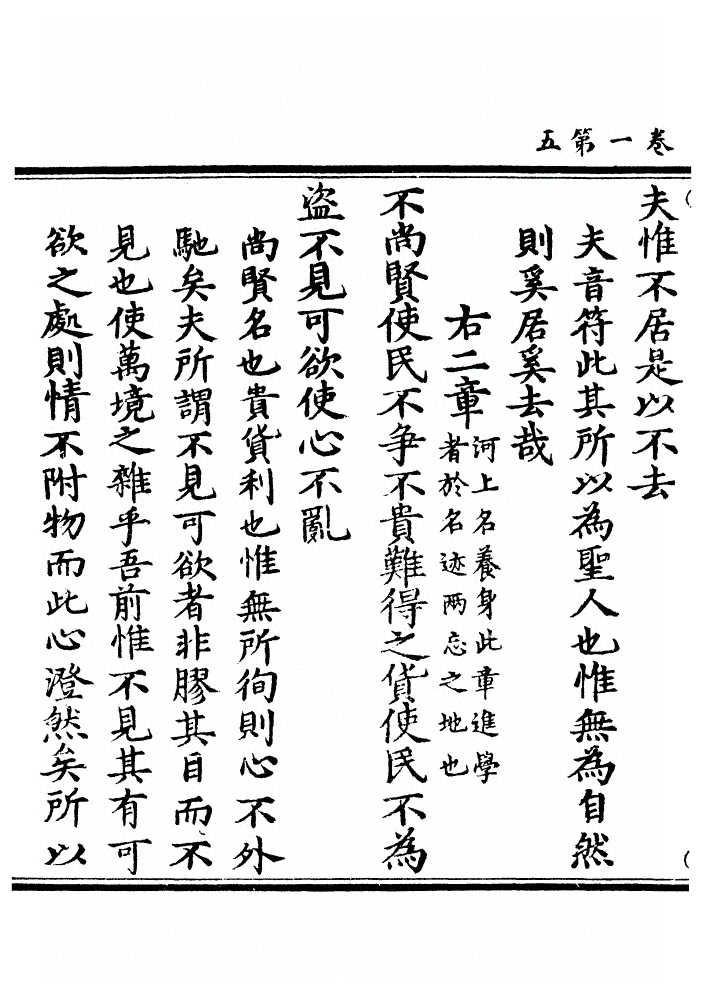 卷一第五
夫惟不居是以不去
夫音符此其所以為聖人也惟無為自然
則奚居奚去哉
右二章
河上名養身此章進學
者於名迹两忘之地也
不尚賢使民不争不貴難得之貨使民不為
盜不見可欲使心不亂
尚賢名也貴貨利也惟無所徇則心不外
馳矣夫所謂不見可欲者非膠其目而不
見也使萬境之雜乎吾前惟不見其有可
欲之處則情不附物而此心澄然矣所以